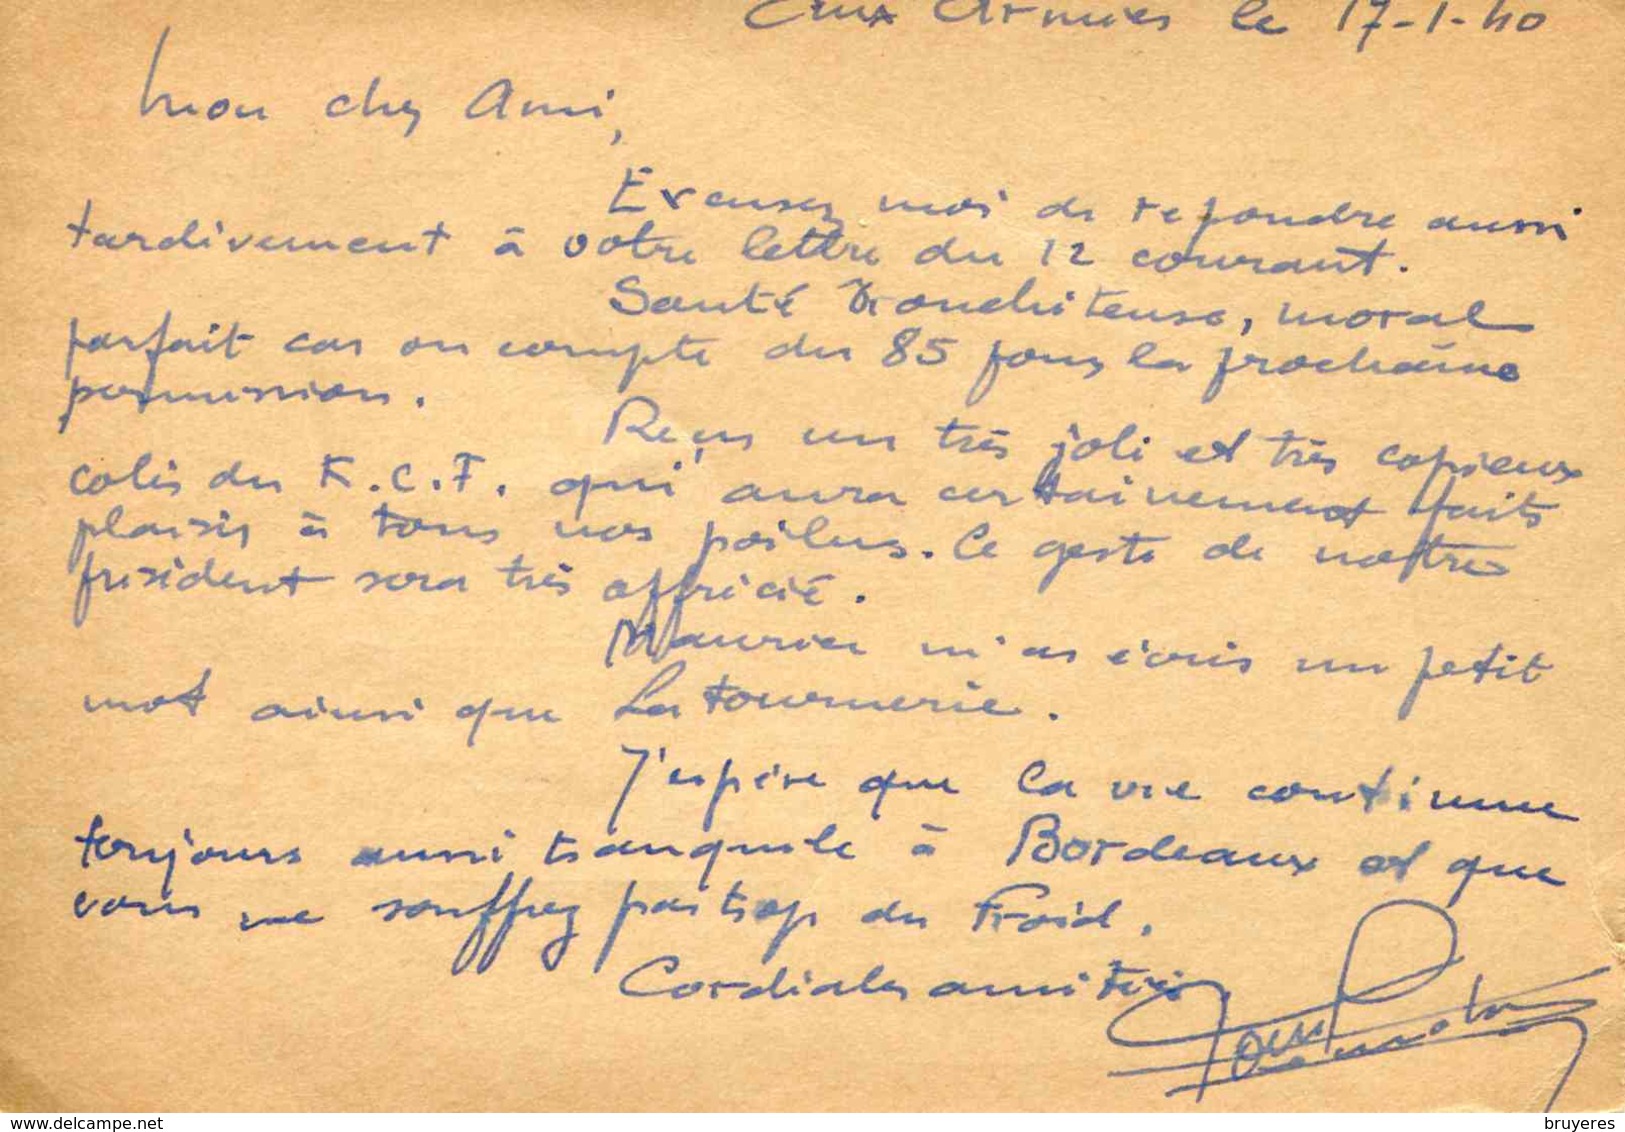 Aux Armées le 17-1-40
Mon cher Ami,
Excusez moi de repondre aussi
tardivement à votre lettre du 12 courant.
Santé bronchiteuse, moral
parfait car on compte du 85 pour la prochaine
permission.
Reçus un très joli et très copieux
colis du K.C.F. qui aura certainement faits
plaisir à tous nos poilus. Ce geste de notre
président sera très apprécié.
Maurice m'as écris un petit
mot ainsi que La tournerie.
J'espère que la vie continue
toujours aussi tranquile à Bordeaux et que
vous ne souffrez pas trop du Froid.
Cordiales amitiés
delcampe.net
bruyeres